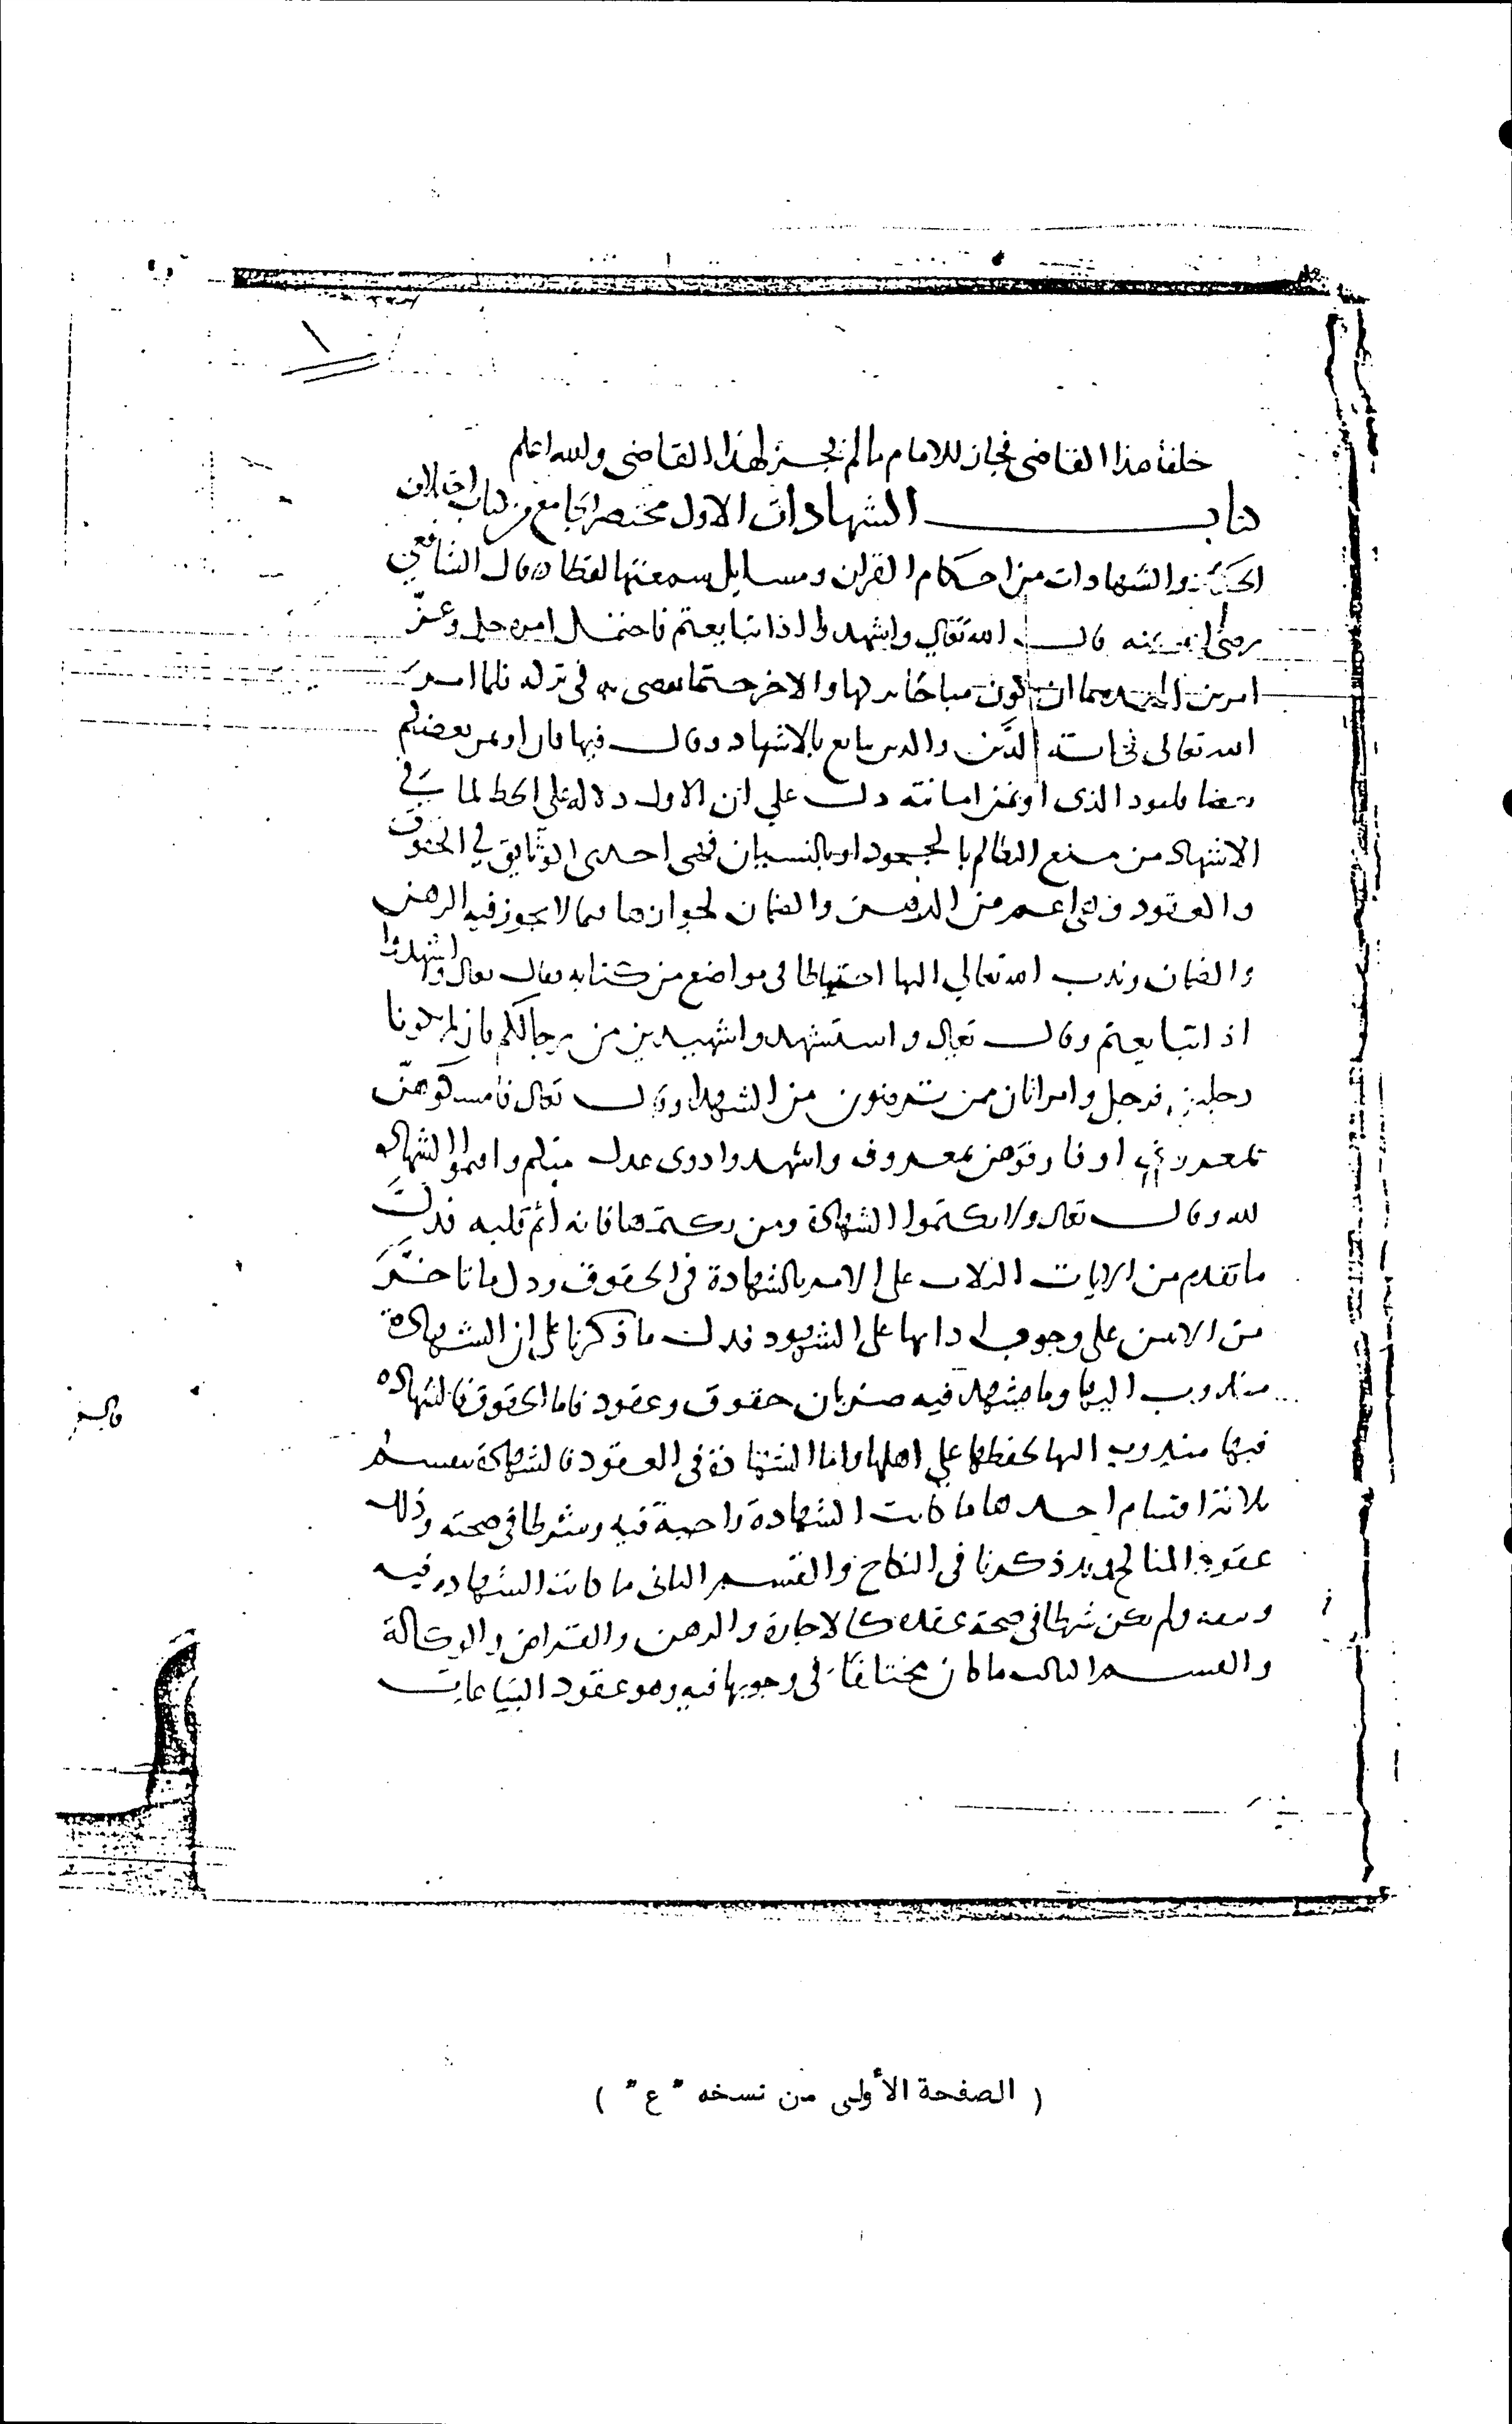 ١
خلفا هذا القاضى فجاز للامام ما لم يجز لهذا القاضى والله اعلم
كتاب الشهادات الاول مختصر الجامع من كتاب اختلاف
الحكام والشهادات من احكام القران ومسايل سمعتها لفظا قال الشافعي
رضى الله عنه قال الله تعالى واشهدوا اذا تبايعتم فاحتمل امره جل وعز
امرين احدهما ان يكون مباحا تركها والاخر حتما يعصى به في تركه فلما امر
الله تعالى في اية الدَّين والدين تبايع بالاشهاد وقال فيها فان امن بعضكم
بعضا فليود الذى اوتمن امانته دل علي ان الاول دلالة على الحظ لما في
الاشهاد من منع التظالم بالجحود او بالنسيان فهى احدى الوثايق في الحقوق
والعقود وهى اعم من الرهن والضمان لجوازها فيما لا يجوز فيه الرهن
والضمان وندب الله تعالي اليها احتياطا فى مواضع من كتابه فقال تعالى واشهدوا
اذا تبايعتم وقال تعالى واستشهدوا شهيدين من رجالكم فان لم يكونا
رجلين فرجل وامراتان ممن ترضون من الشهدا وقال تعالى فامسكوهن
بمعروف او فارقوهن بمعروف واشهدوا ذوى عدل منكم واقيموا الشهاده
لله وقال تعالى ولا تكتموا الشهادة ومن يكتمها فانه اثم قلبه فدل
ما تقدم من الايات الثلاث على الامر بالشهادة فى الحقوق ودل ما تاخر
من الامن على وجوب ادايها على الشهود فدل ما ذكرنا على ان الشهادة
مندوب اليها وما يشهد فيه ضربان حقوق وعقود فاما الحقوق فالشهاده
فيها مندوب اليها لحفظها علي اهلها واما الشهادة فى العقود فالشهادة تنقسم
ثلاثة اقسام احدها ما كانت الشهادة واجبة فيه وشرطا في صحته وذلك
عقود المناكح وقد ذكرنا فى النكاح والقسم الثانى ما كانت الشهادة فيه
ولم يكن شرطا في صحة عقده كالاجارة والرهن والقراض والوكالة
والقسم الثالث ما كان مختلفا فى وجوبها فيه وهو عقود البياعات
( الصفحة الأولى من نسخه " ع " )